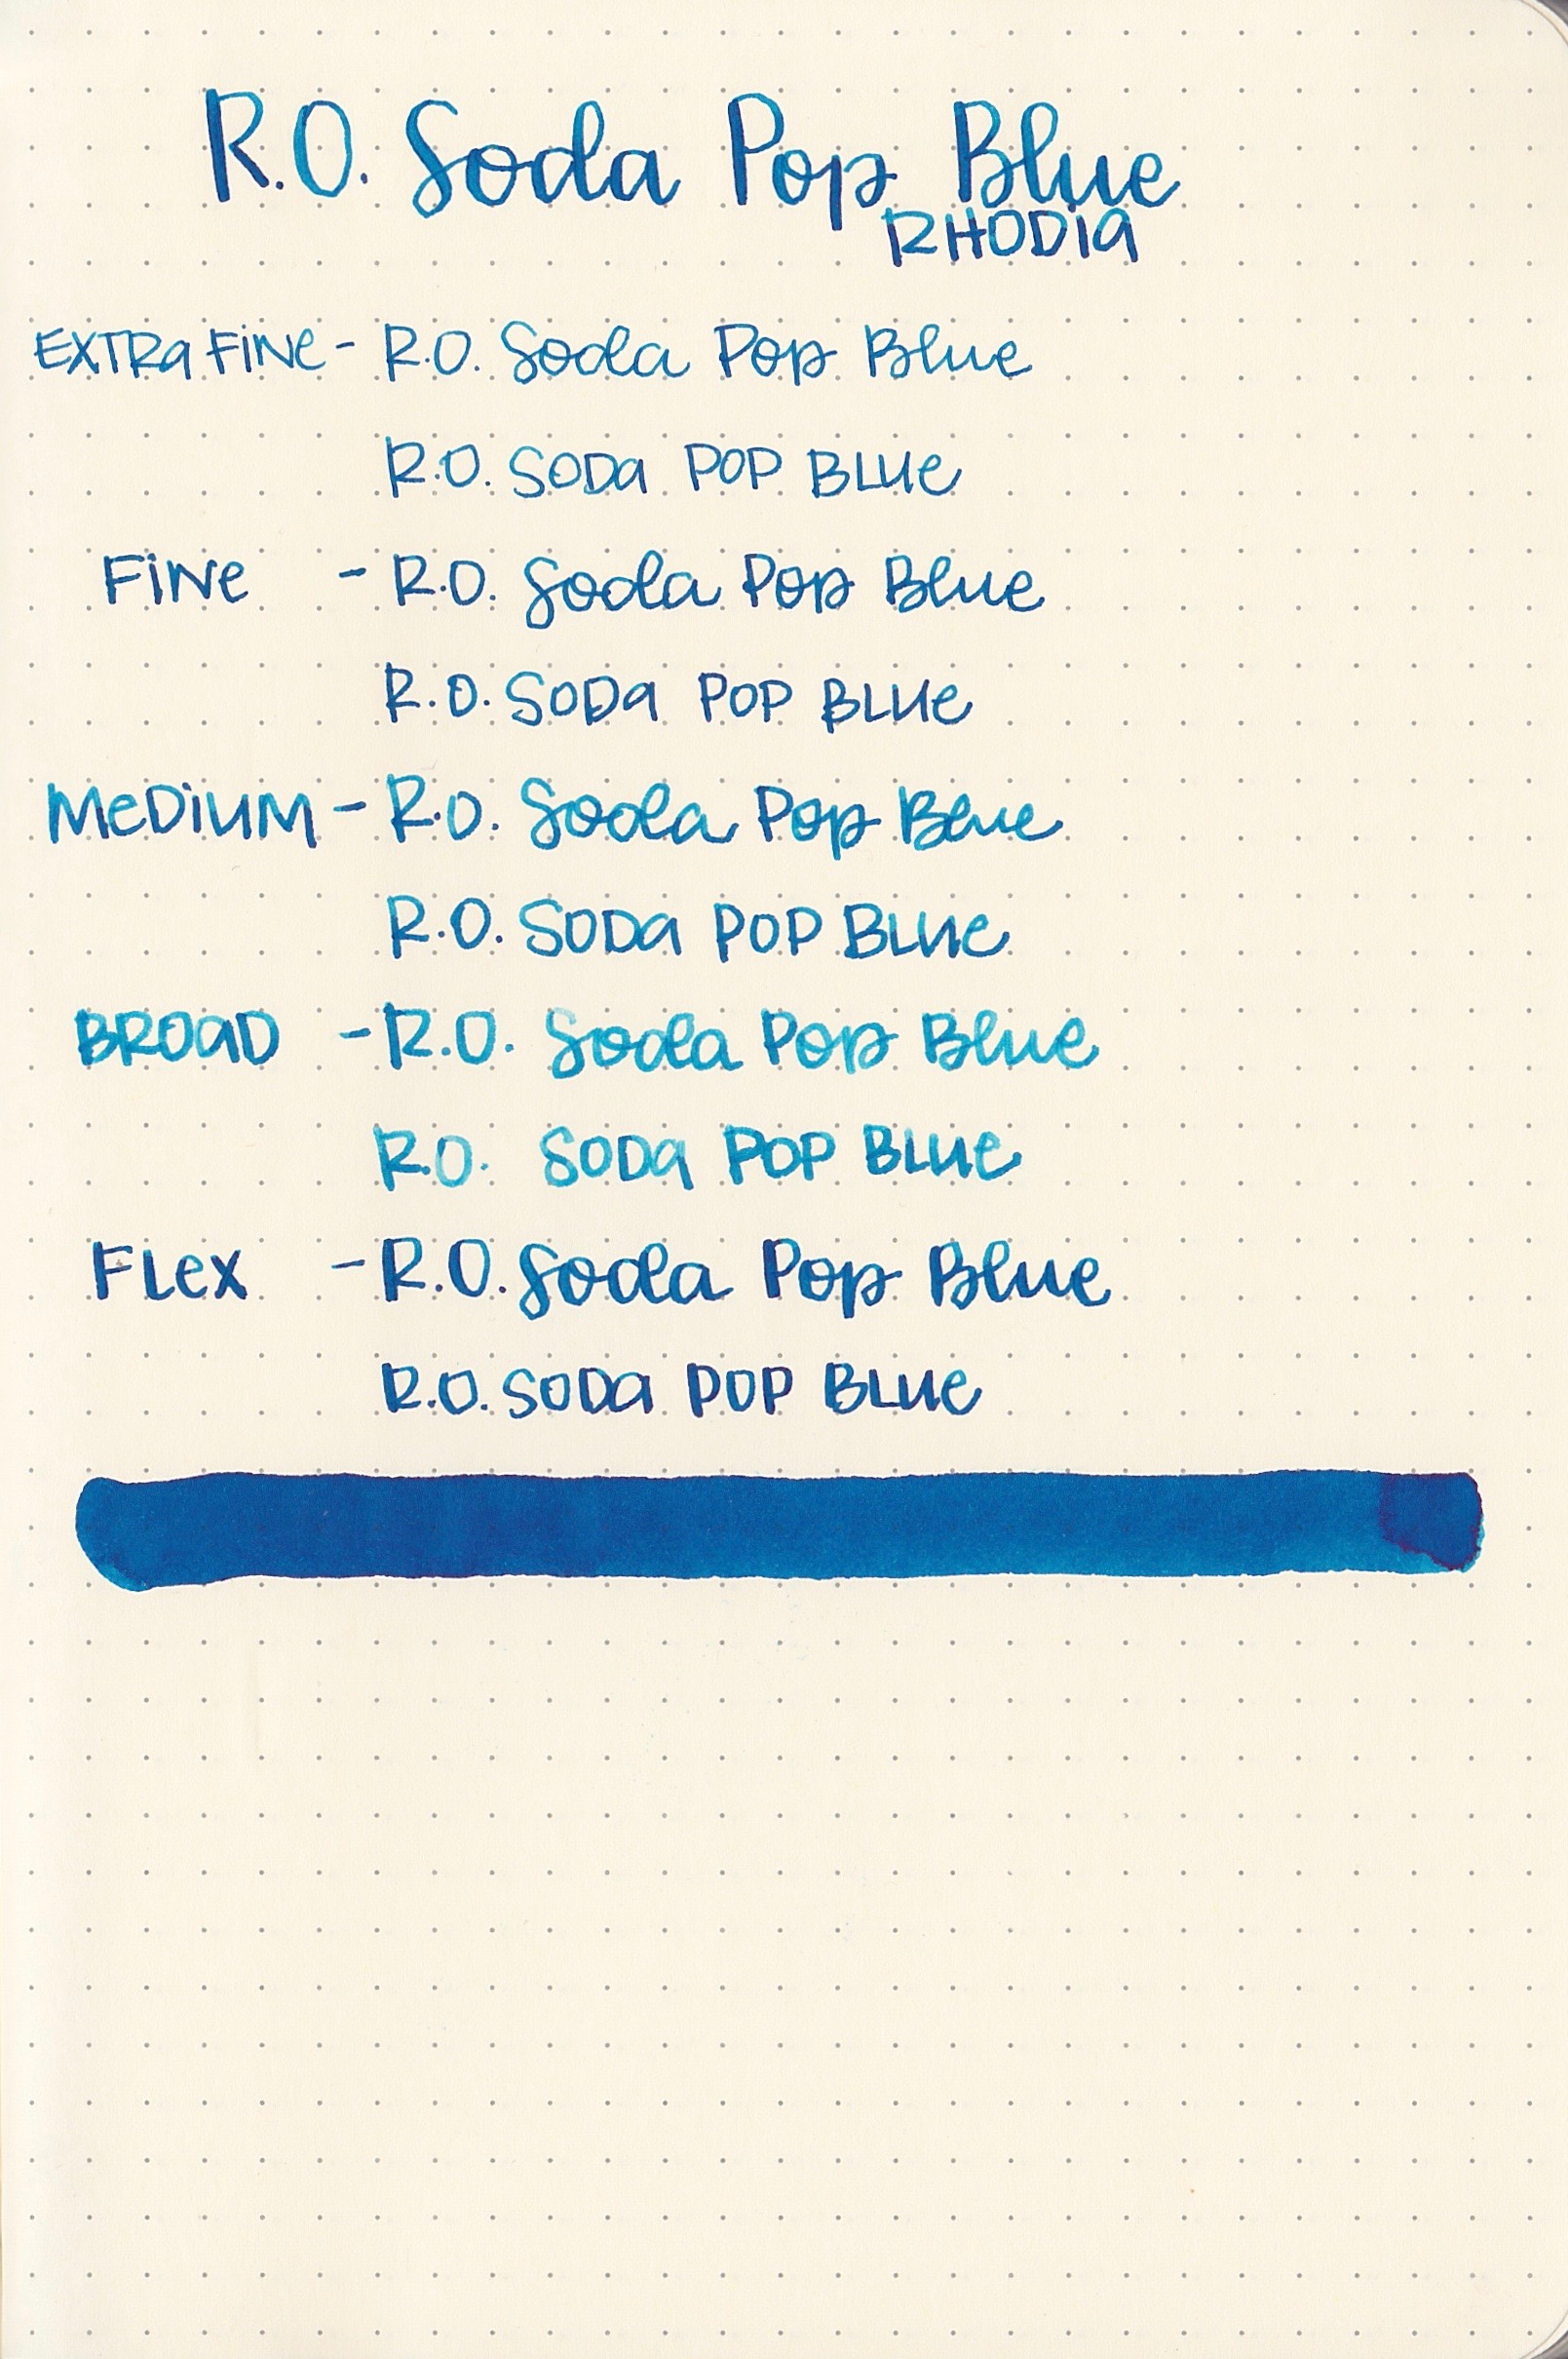 R.O. Soda Pop Blue
RHODIA
EXTRA FINE - R.O. Soda Pop Blue
R.O. SODA POP BLUE
FINE - R.O. Soda Pop Blue
R.O. SODA POP BLUE
MEDIUM - R.O. Soda Pop Blue
R.O. SODA POP BLUE
BROAD - R.O. Soda Pop Blue
R.O. SODA POP BLUE
FLEX - R.O. Soda Pop Blue
R.O. SODA POP BLUE